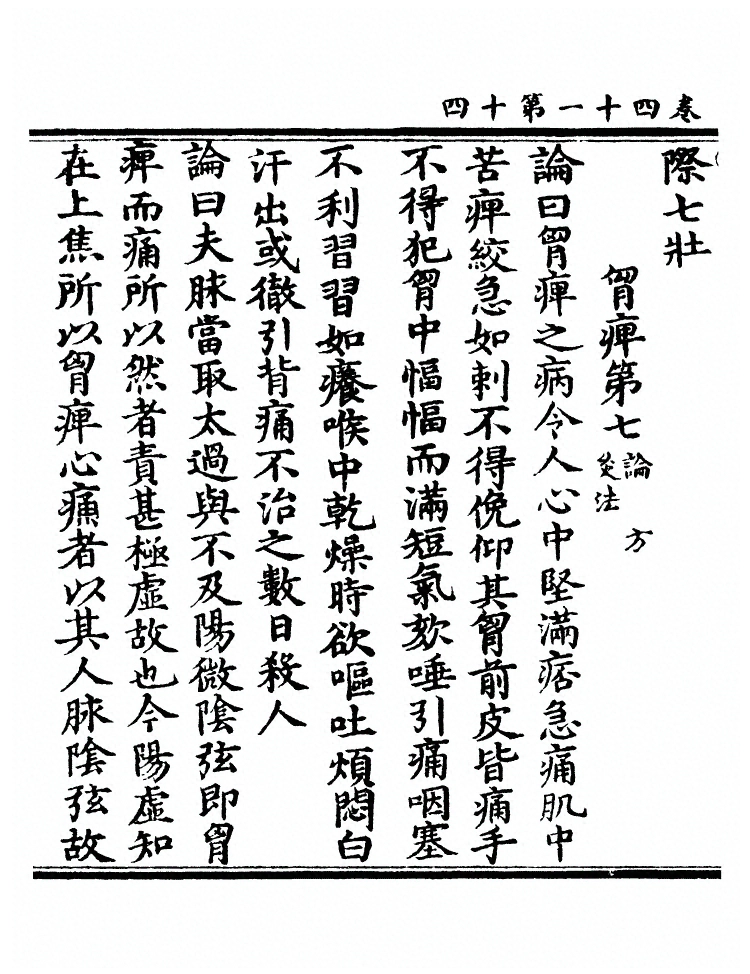 卷四十一第十四
際七壯
胷痺第七 論 方 灸法
論曰胷痺之病令人心中堅滿痞急痛肌中
苦痺絞急如刺不得俛仰其胷前皮皆痛手
不得犯胷中愊愊而滿短氣欬唾引痛咽塞
不利習習如癢喉中乾燥時欲嘔吐煩悶白
汗出或徹引背痛不治之數日殺人
論曰夫脉當取太過與不及陽微陰弦即胷
痺而痛所以然者責甚極虛故也今陽虛知
在上焦所以胷痺心痛者以其人脉陰弦故